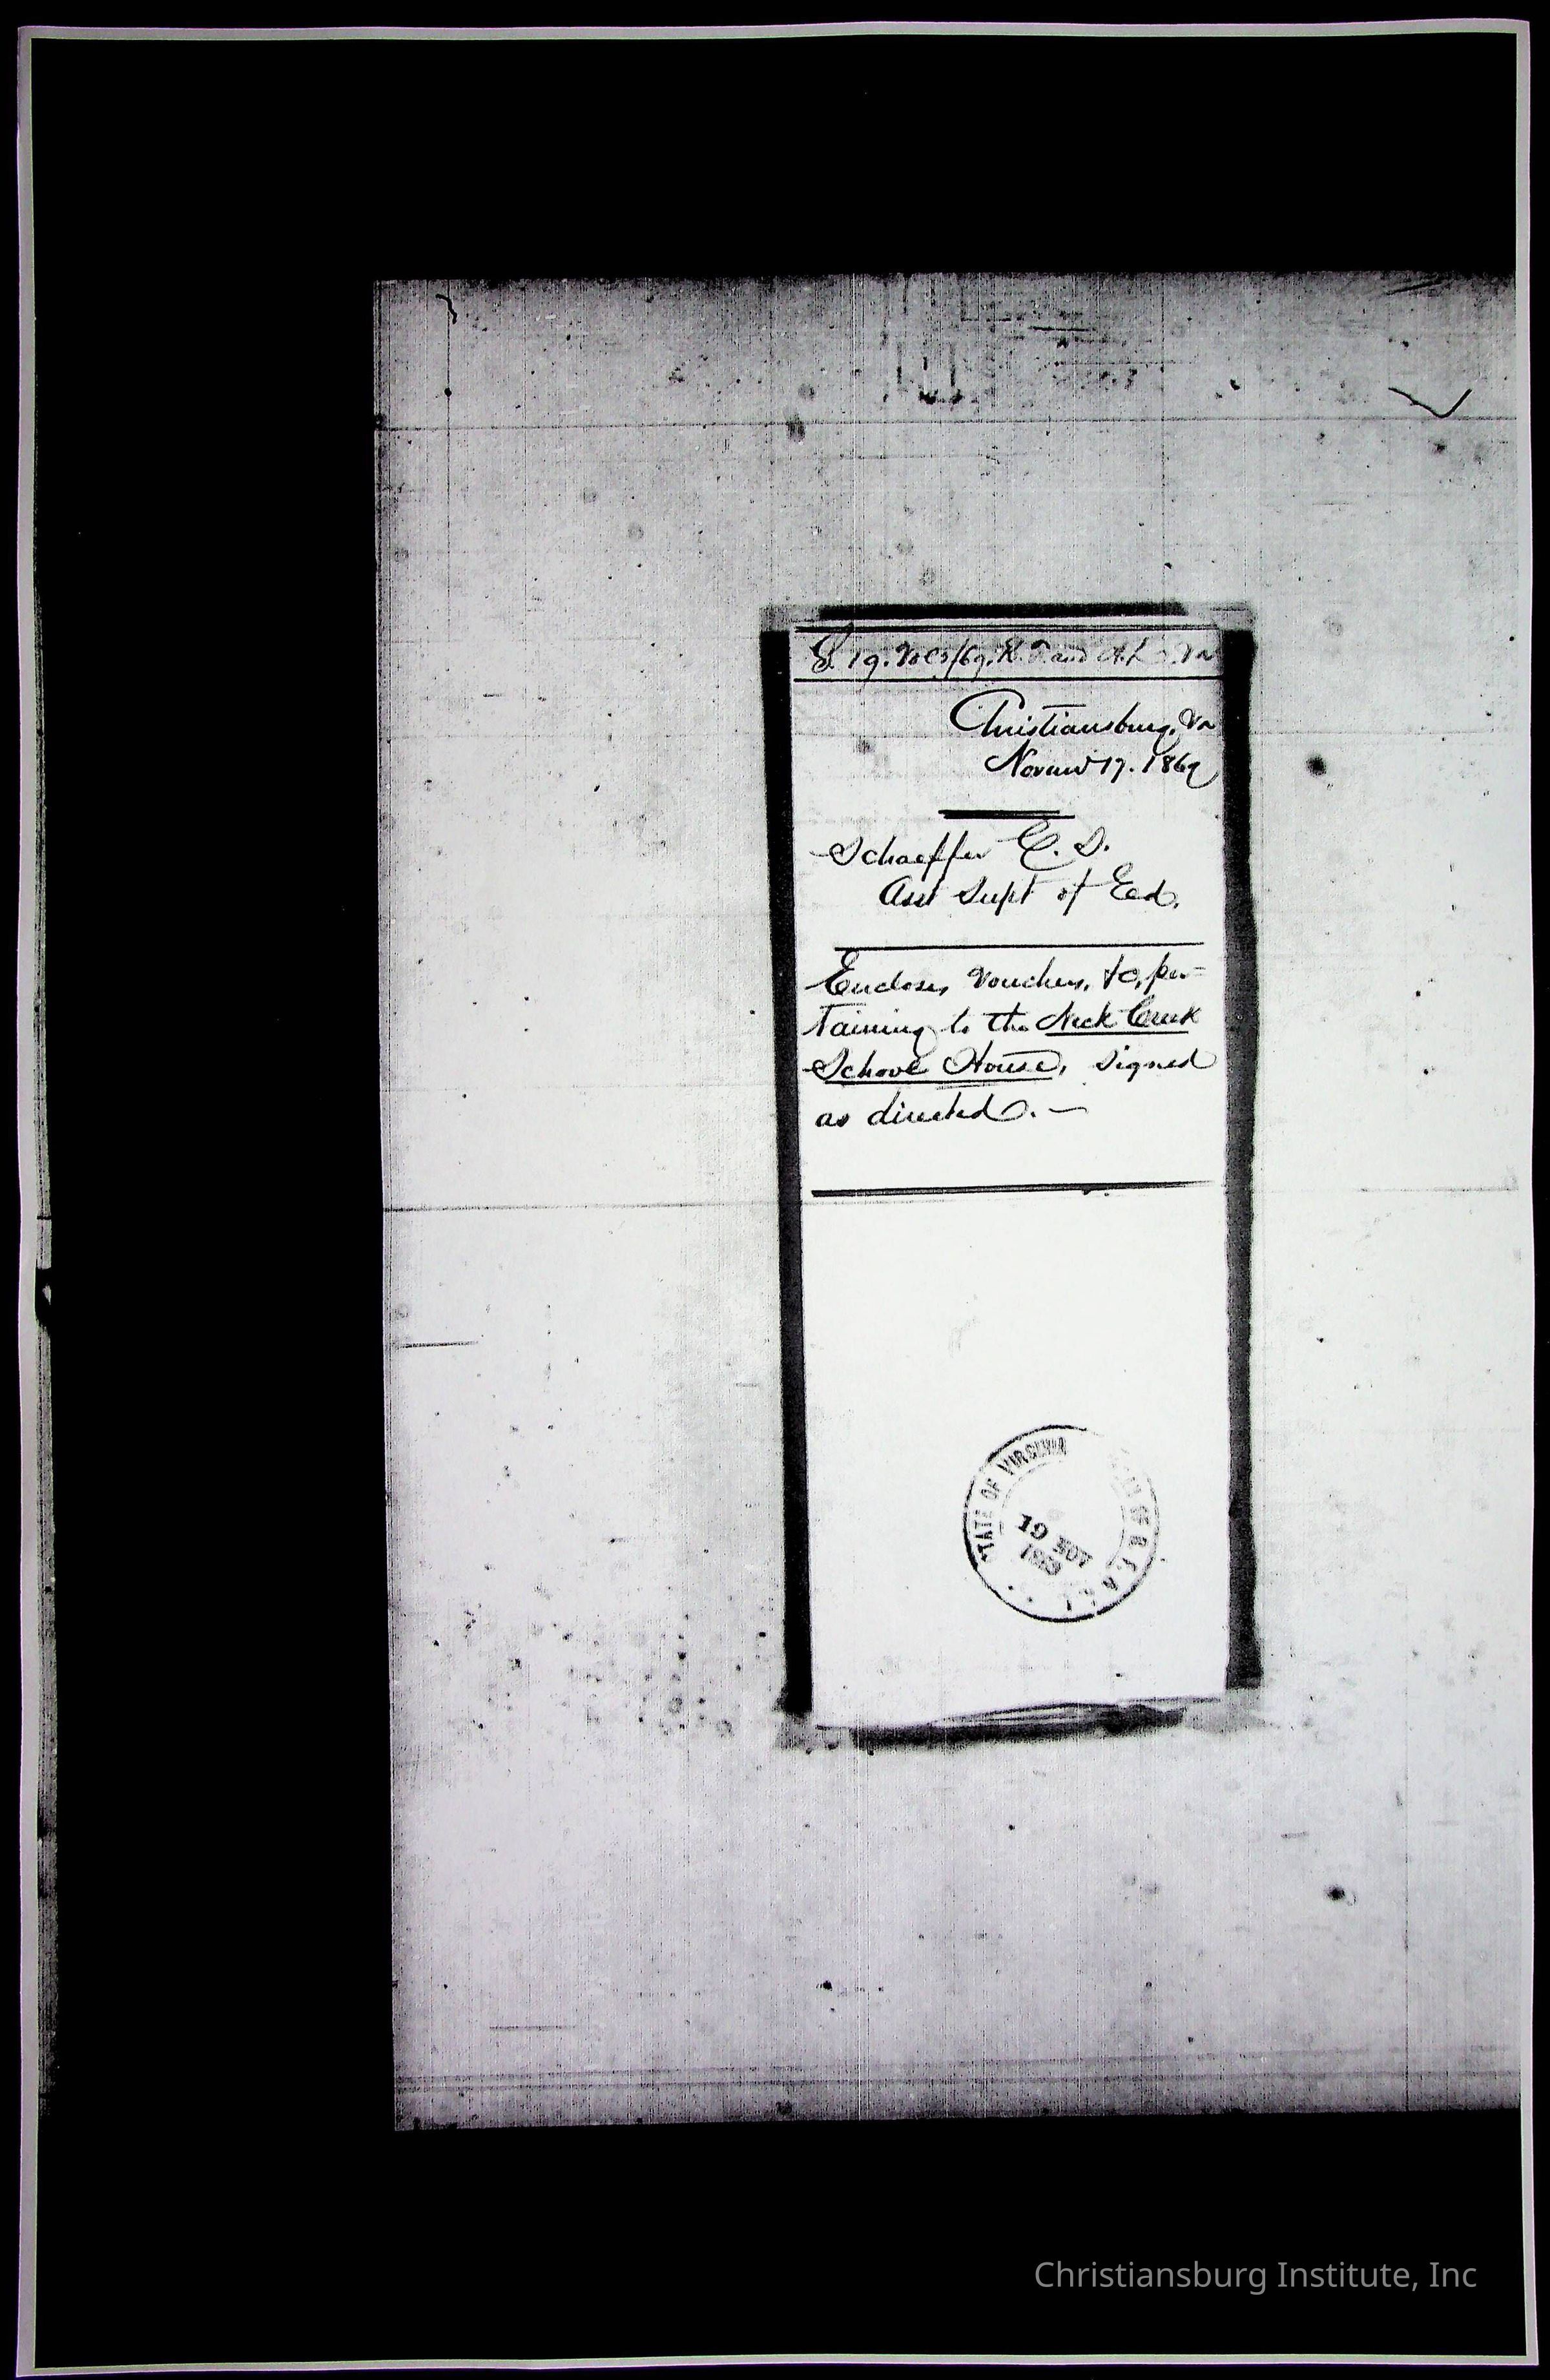 S. 19. Vol 3/69. R. F. and A. L. Va
Christiansburg, Va
Novem 17. 1869
Schaeffer C. S.
Asst Supt of Ed.
Encloses Vouchers, &c, per-
taining to the Neck Creek
School House, signed
as directed. —
STATE OF VIRGINIA
19 NOV
1869
Christiansburg Institute, Inc